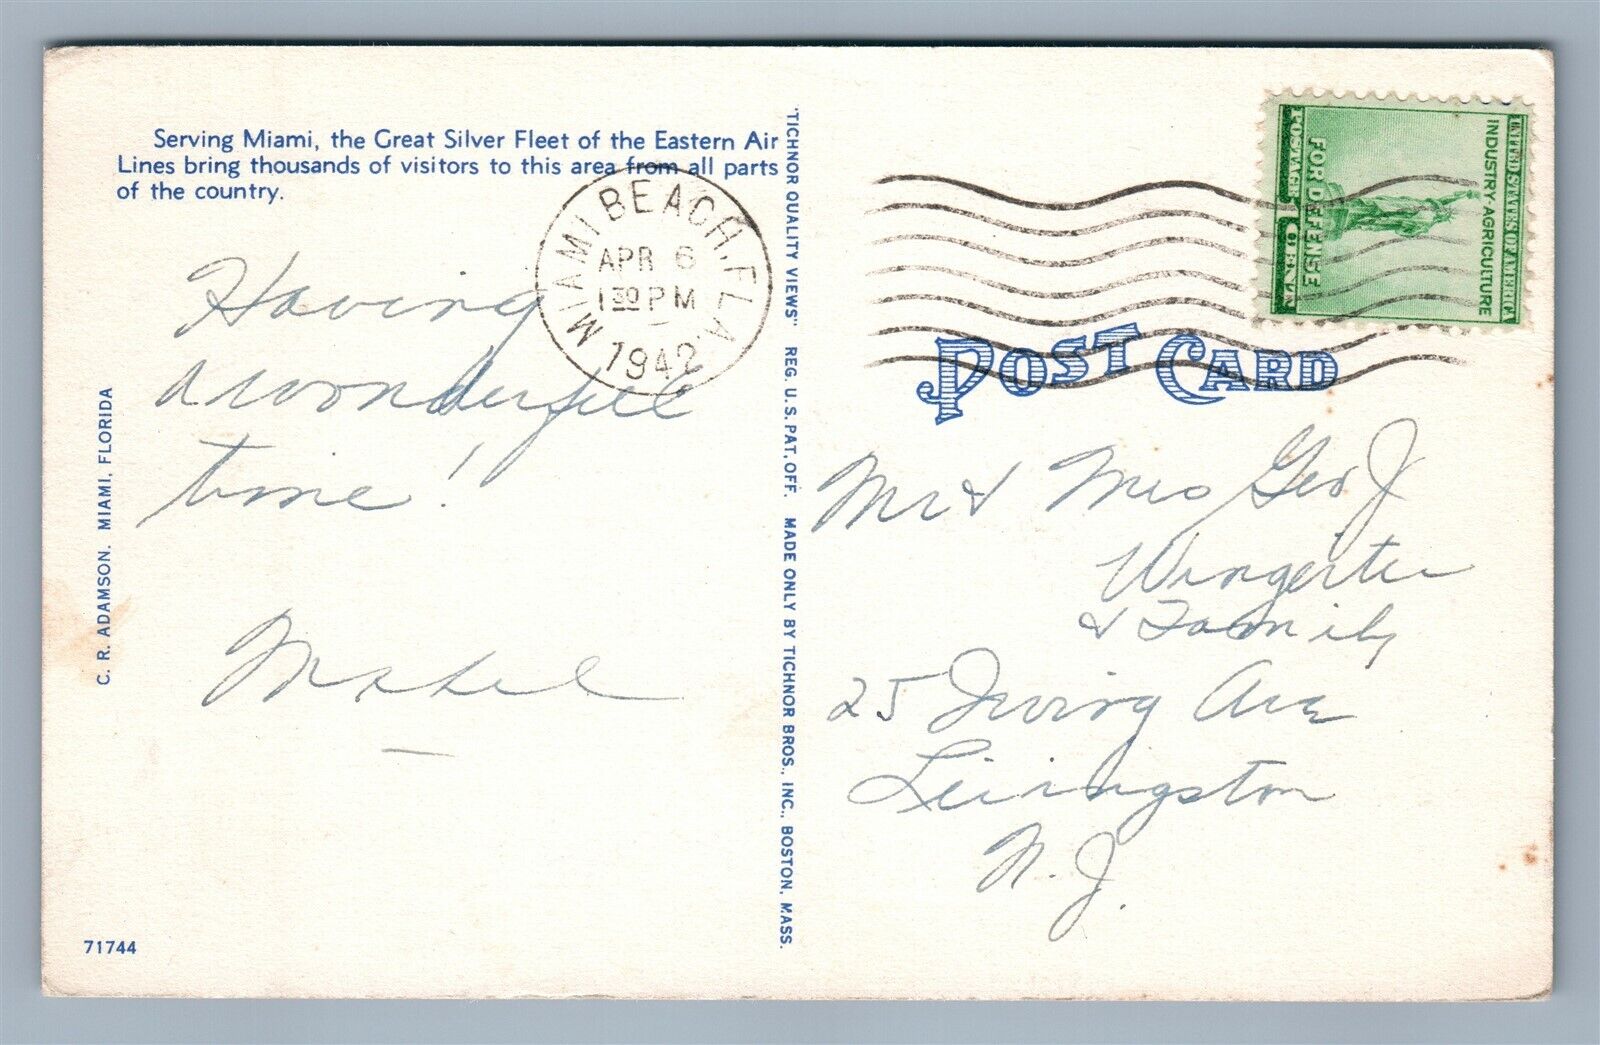 Serving Miami, the Great Silver Fleet of the Eastern Air
Lines bring thousands of visitors to this area from all parts
of the country.
MIAMI BEACH, FLA.
APR 6
1 30 PM
1942
Having
a wonderful
time!
Mabel
C. R. ADAMSON, MIAMI, FLORIDA
71744
"TICHNOR QUALITY VIEWS" REG. U.S. PAT. OFF. MADE ONLY BY TICHNOR BROS., INC., BOSTON, MASS.
UNITED STATES OF AMERICA
INDUSTRY·AGRICULTURE
FOR DEFENSE
POSTAGE 1 CENT
POST CARD
Mr & Mrs Geo J
Wingerter
& Family
25 Irving Ave
Livingston
N. J.